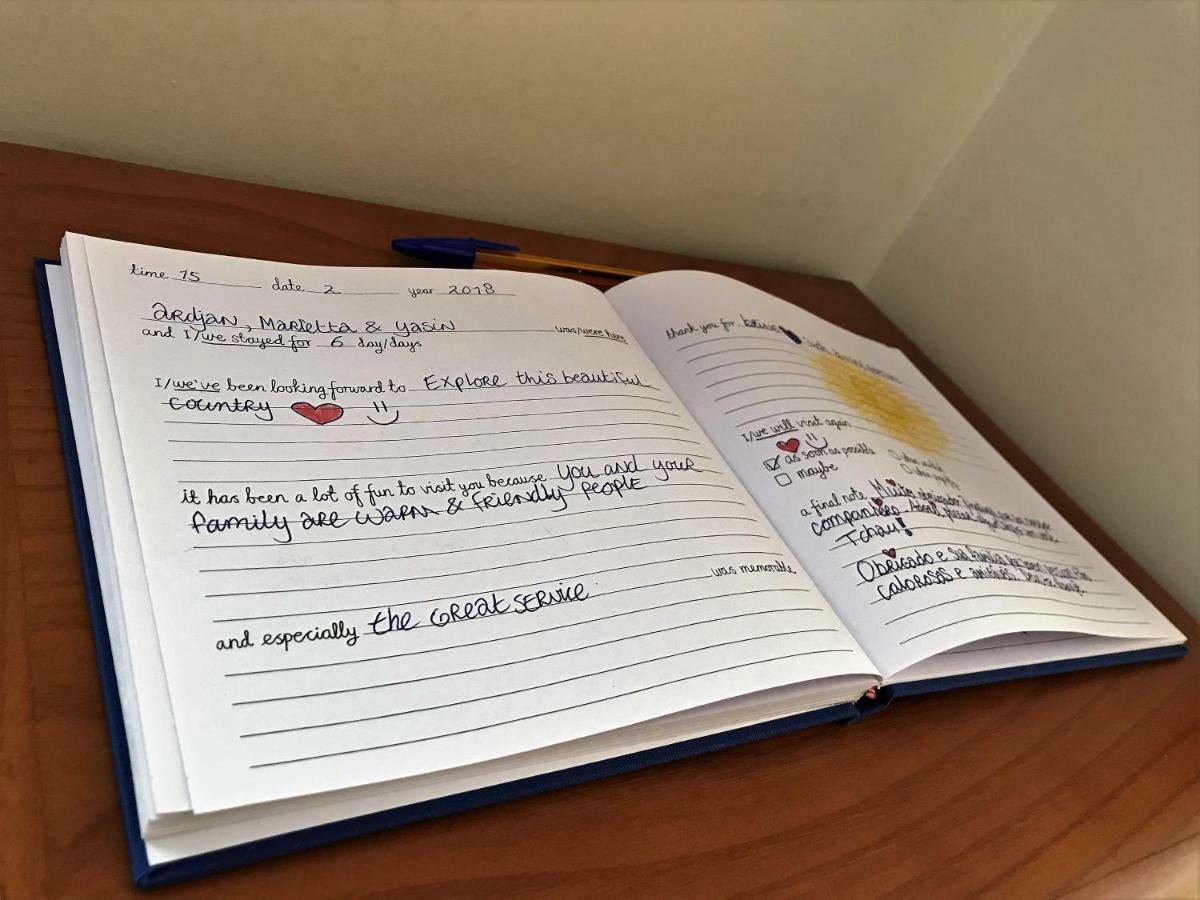 time 15 date 2 year 2018
Ardjan, Marietta & Yasin was/were here
and I/we stayed for 6 day/days
I/we've been looking forward to Explore this beautiful
country
it has been a lot of fun to visit you because you and your
family are warm & friendly people
was memorable
and especially the Great Service
thank you for
I/we will visit again
as soon as possible
maybe
a final note Muito obrigado
companheiro
Tchau!
Obrigado e sua família
calorosas e